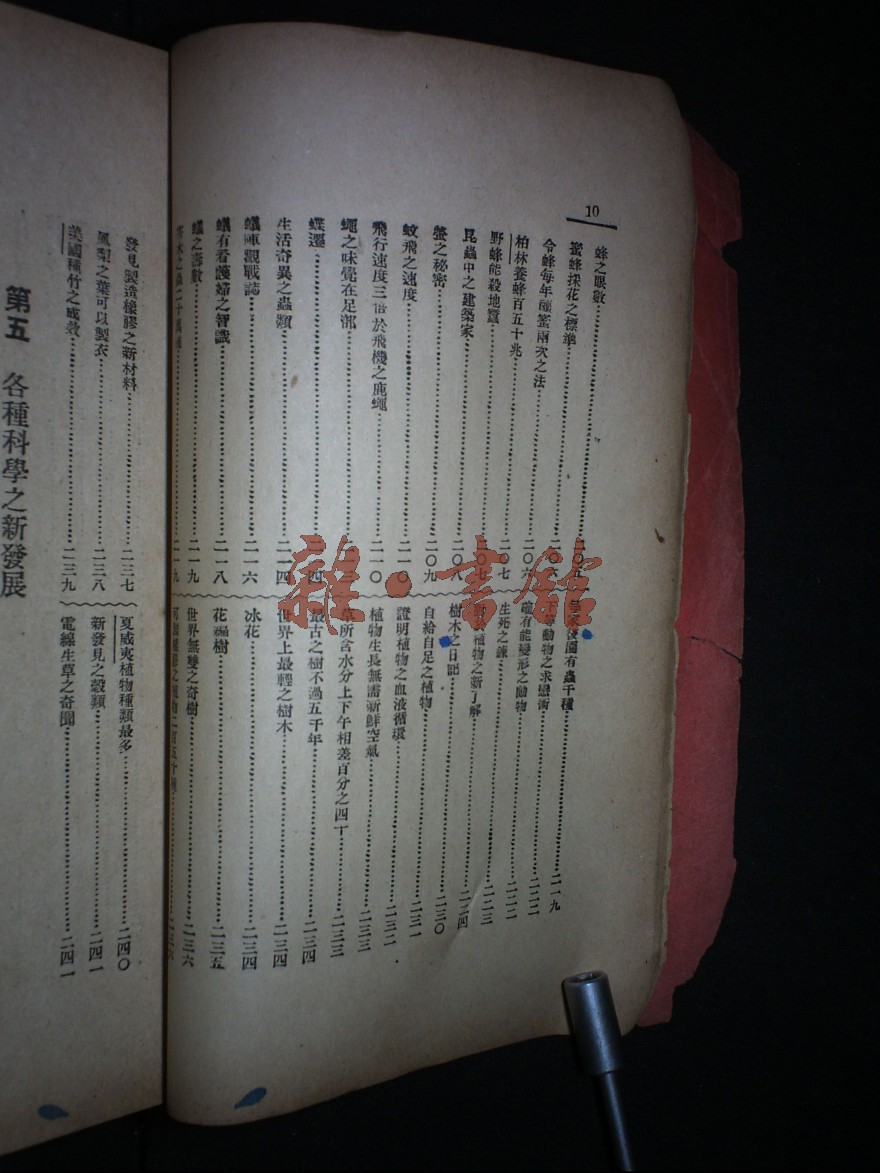 10
蜂之眼數……二〇五
蜜蜂採花之標準……二〇六
令蜂每年釀蜜兩次之法……二〇六
柏林養蜂百五十兆……二〇七
野蜂能殺地蠶……二〇七
昆蟲中之建築家……二〇八
螢之秘密……二〇九
蚊飛之速度……二一〇
飛行速度三倍於飛機之鹿蠅……二一〇
蠅之味覺在足部……二一三
蝶遷……二一四
生活奇異之蟲類……二一四
蟻陣觀戰誌……二一六
蟻有看護婦之智識……二一八
蟻之壽數……二一九
之蟲二十萬種……二一九
皇家發園有蟲千種……二一九
下等動物之求戀術……二二二
確有能變形之動物……二二二
生死之謎……二二三
植物之新了解……二二四
樹木之日記
自給自足之植物……二三〇
證明植物之血液循環……二三一
植物生長無需新鮮空氣……二三二
草所含水分上下午相差百分之四十……二三三
最古之樹不過五千年……二三三
世界上最輕之樹木……二三四
冰花……二三四
花福樹……二三五
世界無雙之奇樹……二三六
之植物二百五十種……二三六
發見製造橡膠之新材料……二三七
鳳梨之葉可以製衣……二三八
美國種竹之成效……二三九
夏威夷植物種類最多……二四〇
新發見之穀類……二四一
電線生草之奇聞……二四一
第五 各種科學之新發展
雜·書館